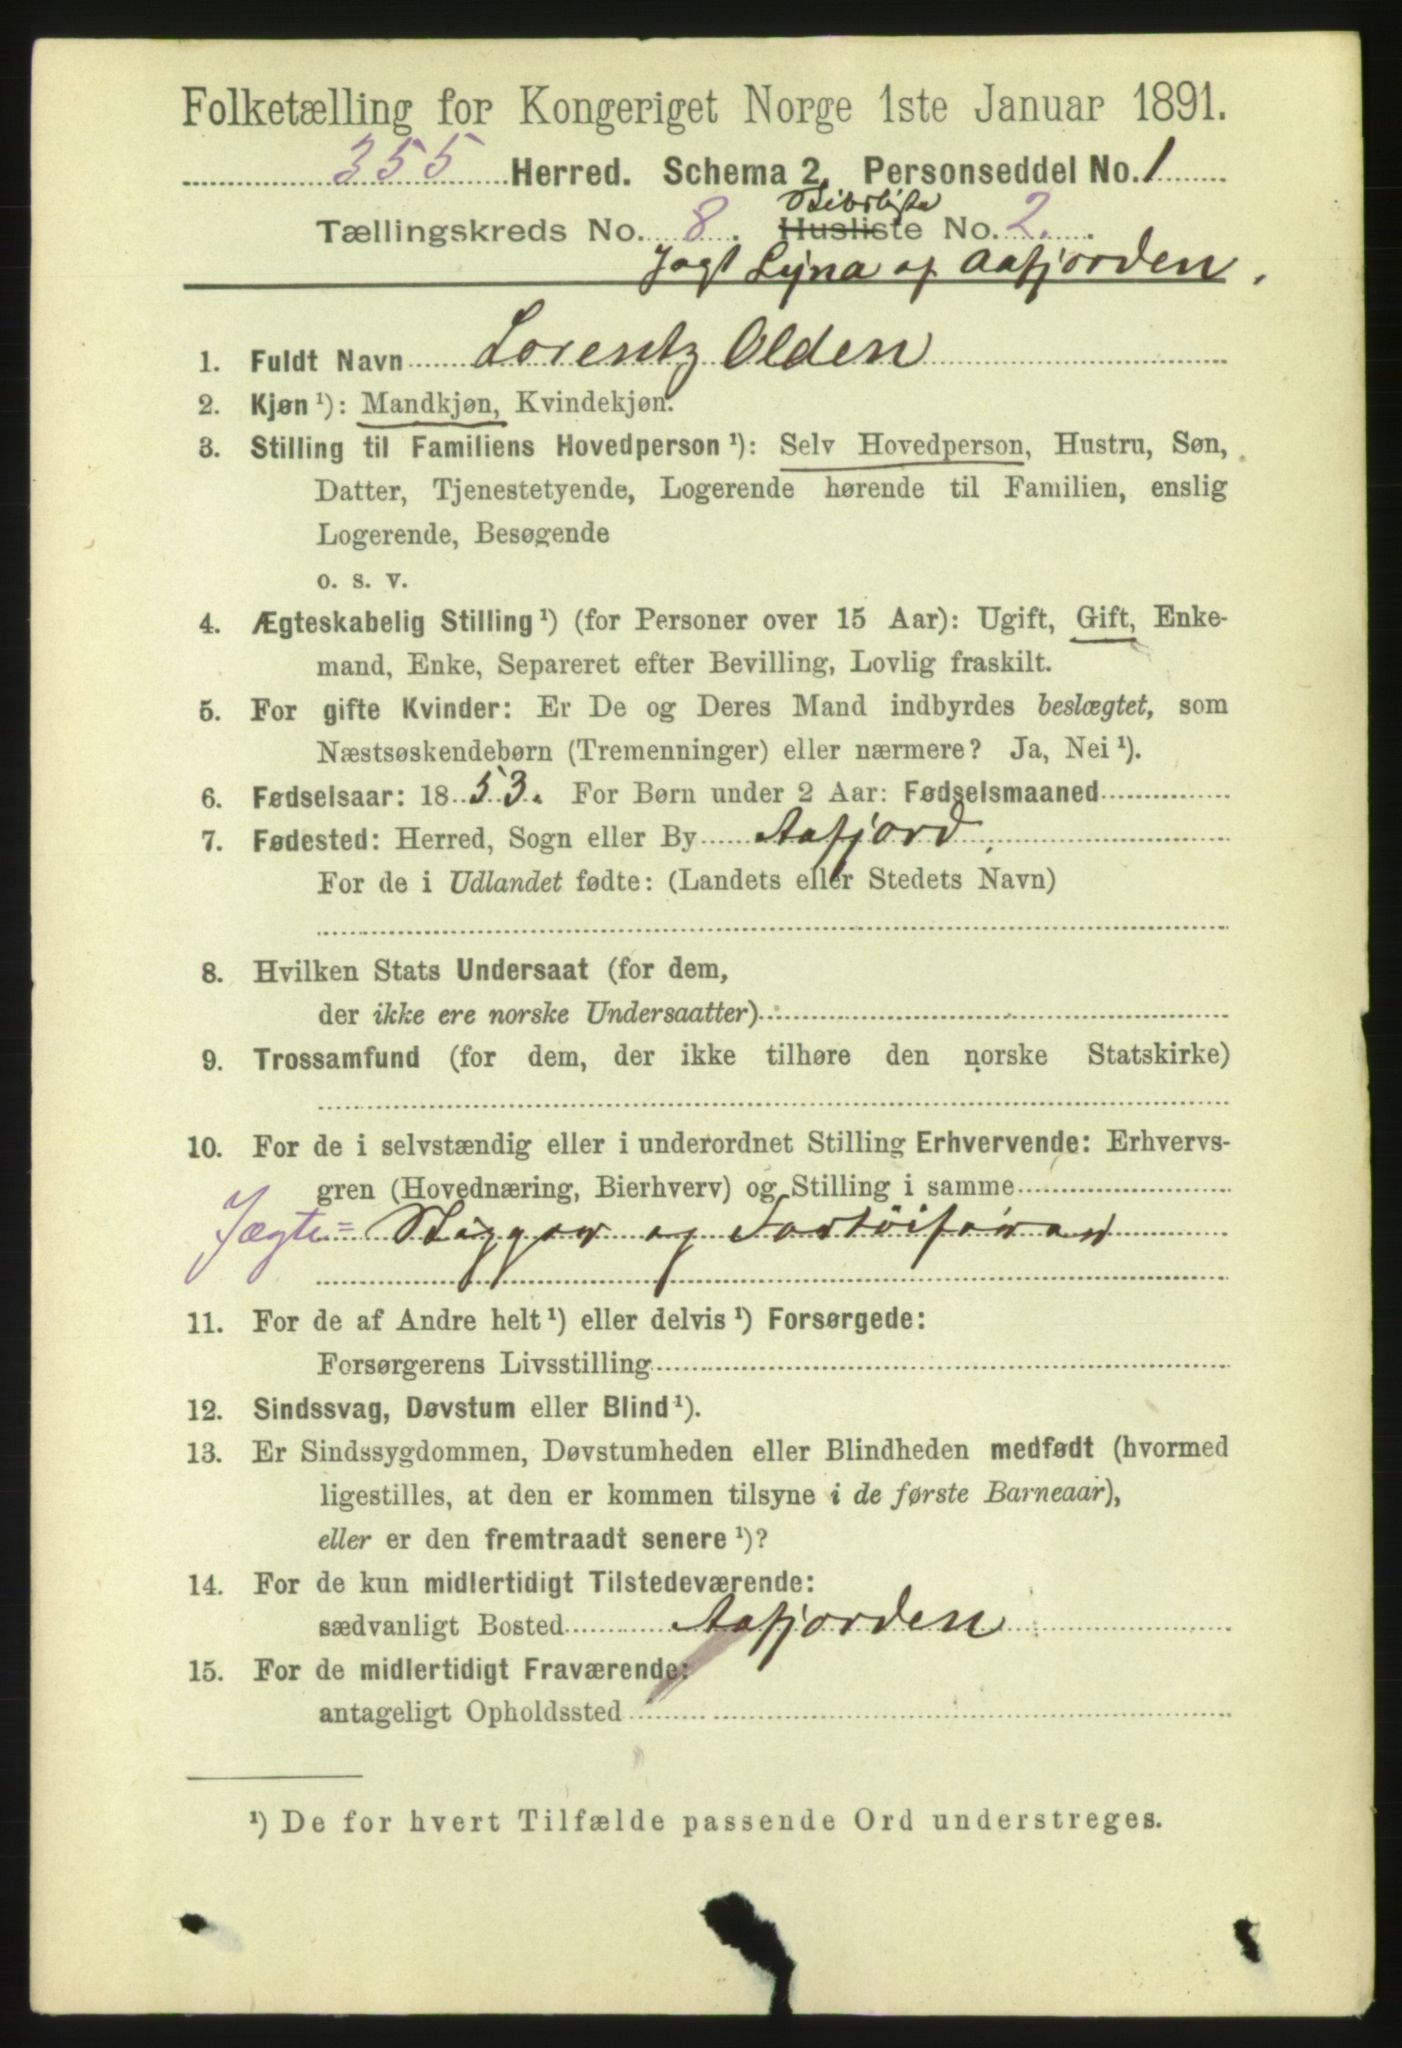 Folketælling for Kongeriget Norge 1ste Januar 1891.
355 Herred. Schema 2. Personseddel No. 1
Skibsliste
Tællingskreds No. 8. Husliste No. 2.
Jagt Lyna af Aafjorden.
1. Fuldt Navn Lorentz Olden
2. Kjøn ¹): Mandkjøn, Kvindekjøn.
3. Stilling til Familiens Hovedperson ¹): Selv Hovedperson, Hustru, Søn,
Datter, Tjenestetyende, Logerende hørende til Familien, enslig
Logerende, Besøgende
o. s. v.
4. Ægteskabelig Stilling ¹) (for Personer over 15 Aar): Ugift, Gift, Enke-
mand, Enke, Separeret efter Bevilling, Lovlig fraskilt.
5. For gifte Kvinder: Er De og Deres Mand indbyrdes beslægtet, som
Næstsøskendebørn (Tremenninger) eller nærmere? Ja, Nei ¹).
6. Fødselsaar: 1853. For Børn under 2 Aar: Fødselsmaaned
7. Fødested: Herred, Sogn eller By Aafjord.
For de i Udlandet fødte: (Landets eller Stedets Navn)
8. Hvilken Stats Undersaat (for dem,
der ikke ere norske Undersaatter)
9. Trossamfund (for dem, der ikke tilhøre den norske Statskirke)
10. For de i selvstændig eller i underordnet Stilling Erhvervende: Erhvervs-
gren (Hovednæring, Bierhverv) og Stilling i samme
Jægte= Skipper og
11. For de af Andre helt ¹) eller delvis ¹) Forsørgede:
Forsørgerens Livsstilling
12. Sindssvag, Døvstum eller Blind ¹).
13. Er Sindssygdommen, Døvstumheden eller Blindheden medfødt (hvormed
ligestilles, at den er kommen tilsyne i de første Barneaar),
eller er den fremtraadt senere ¹)?
14. For de kun midlertidigt Tilstedeværende:
sædvanligt Bosted Aafjorden
15. For de midlertidigt Fraværende:
antageligt Opholdssted
¹) De for hvert Tilfælde passende Ord understreges.